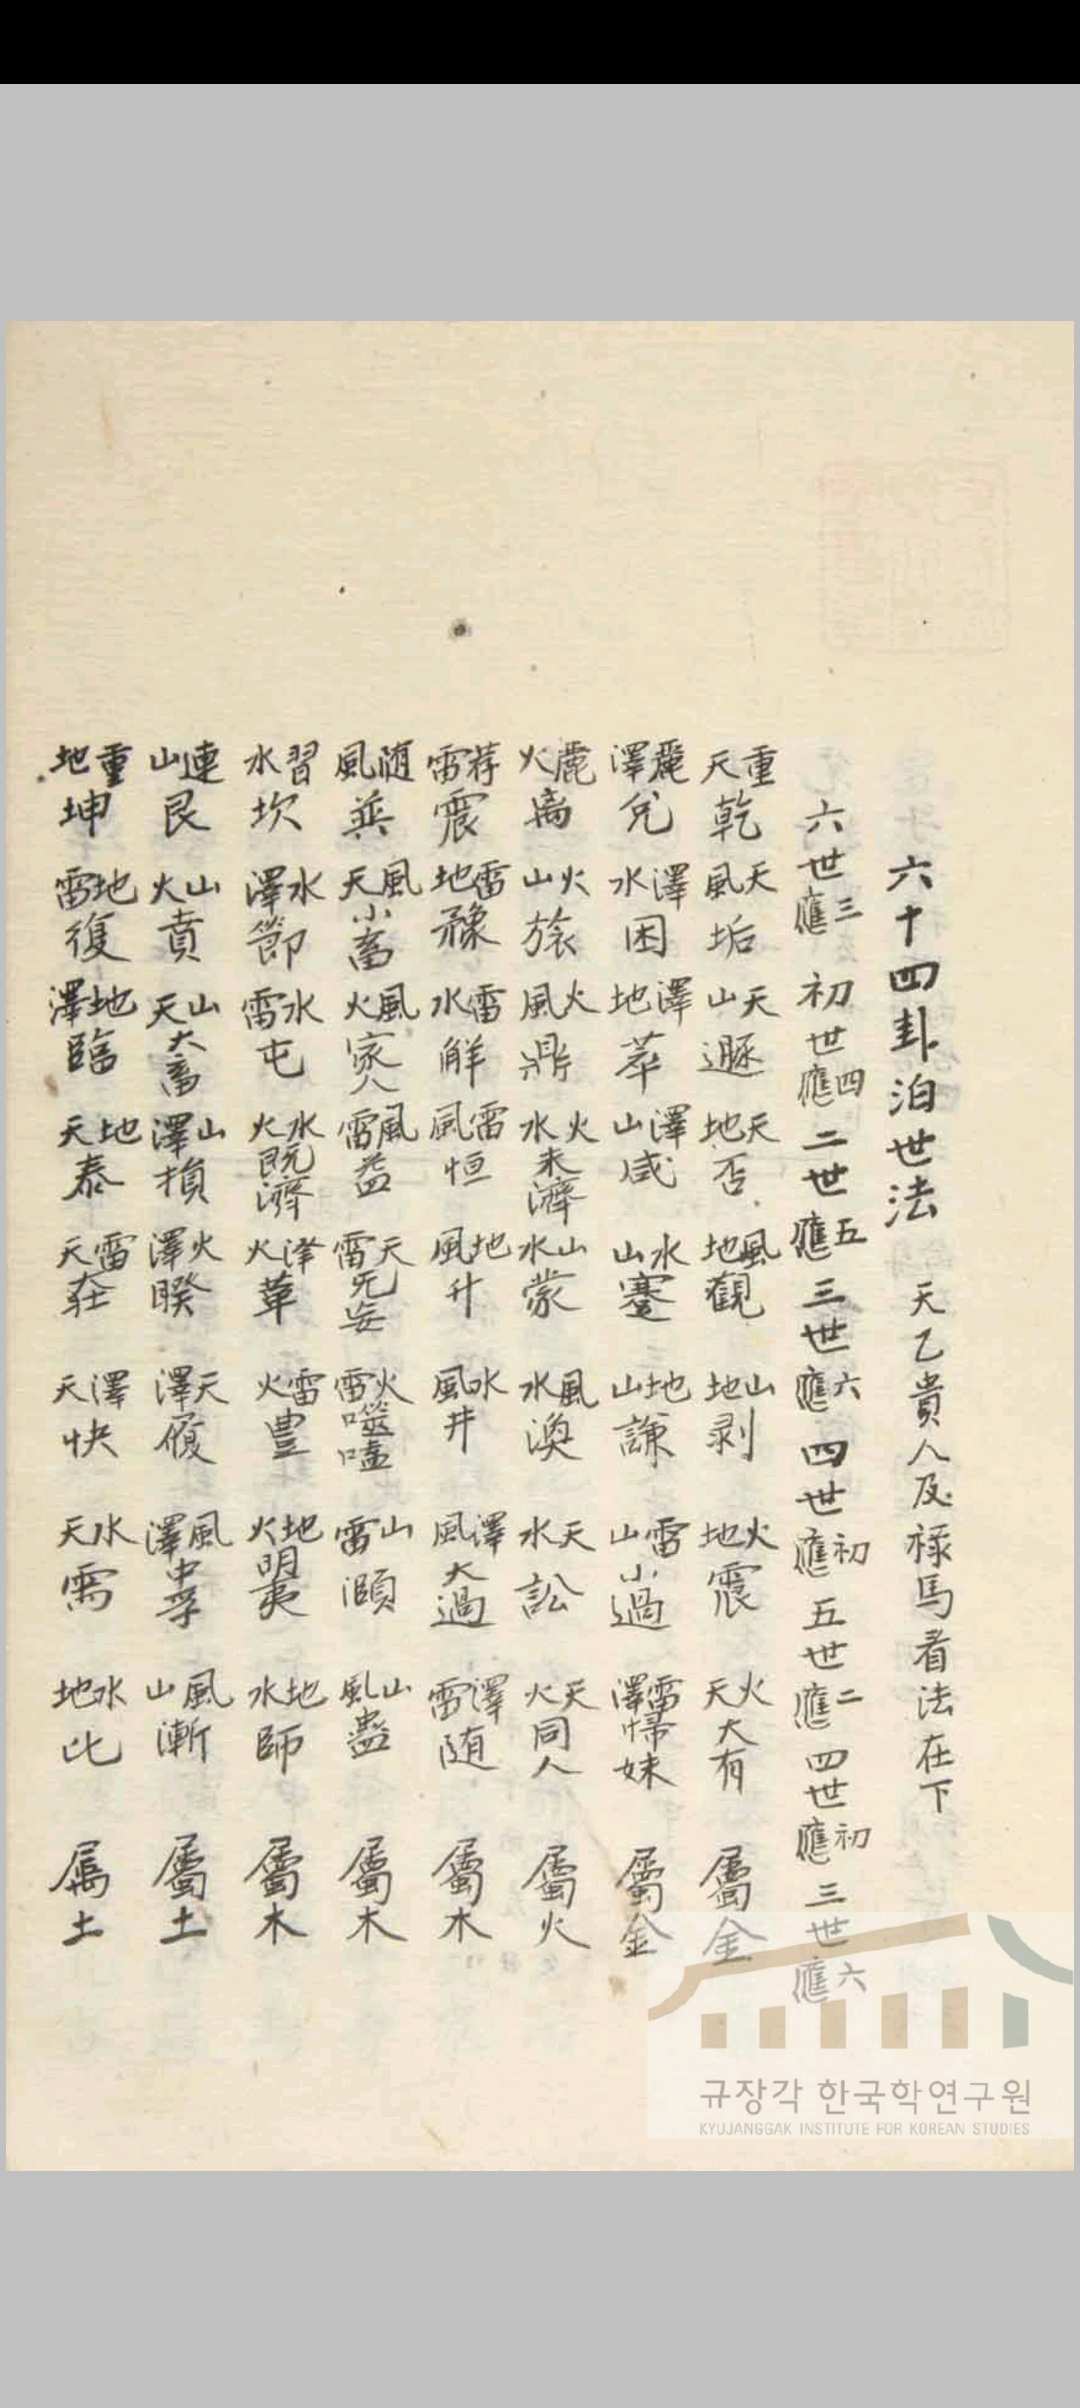 六十四卦泊世法 天乙貴人及祿馬看法在下
六世應三 初世應四 二世應五 三世應六 四世應初 五世應二 四世應初 三世應六
重天乾 天風垢 天山遯 天地否 風地觀 山地剥 火地震 火天大有 屬金
麗澤兌 澤水困 澤地萃 澤山咸 水山蹇 地山謙 雷山小過 雷澤帰妹 屬金
麗火离 火山旅 火風鼎 火水未濟 山水蒙 風水渙 天水訟 天火同人 屬火
荐雷震 雷地豫 雷水解 雷風恒 地風升 水風井 澤風大過 澤雷随 屬木
随風巽 風天小畜 風火家人 風雷益 天雷无妄 火雷噬嗑 山雷頤 山風蠱 屬木
習水坎 水澤節 水雷屯 水火既濟 澤火革 雷火豊 地火明夷 地水師 屬木
連山艮 山火賁 山天大畜 山澤損 火澤睽 天澤履 風澤中孚 風山漸 屬土
重地坤 地雷復 地澤臨 地天泰 雷天壯 澤天快 水天需 水地比 属土
규장각 한국학연구원
KYUJANGGAK INSTITUTE FOR KOREAN STUDIES